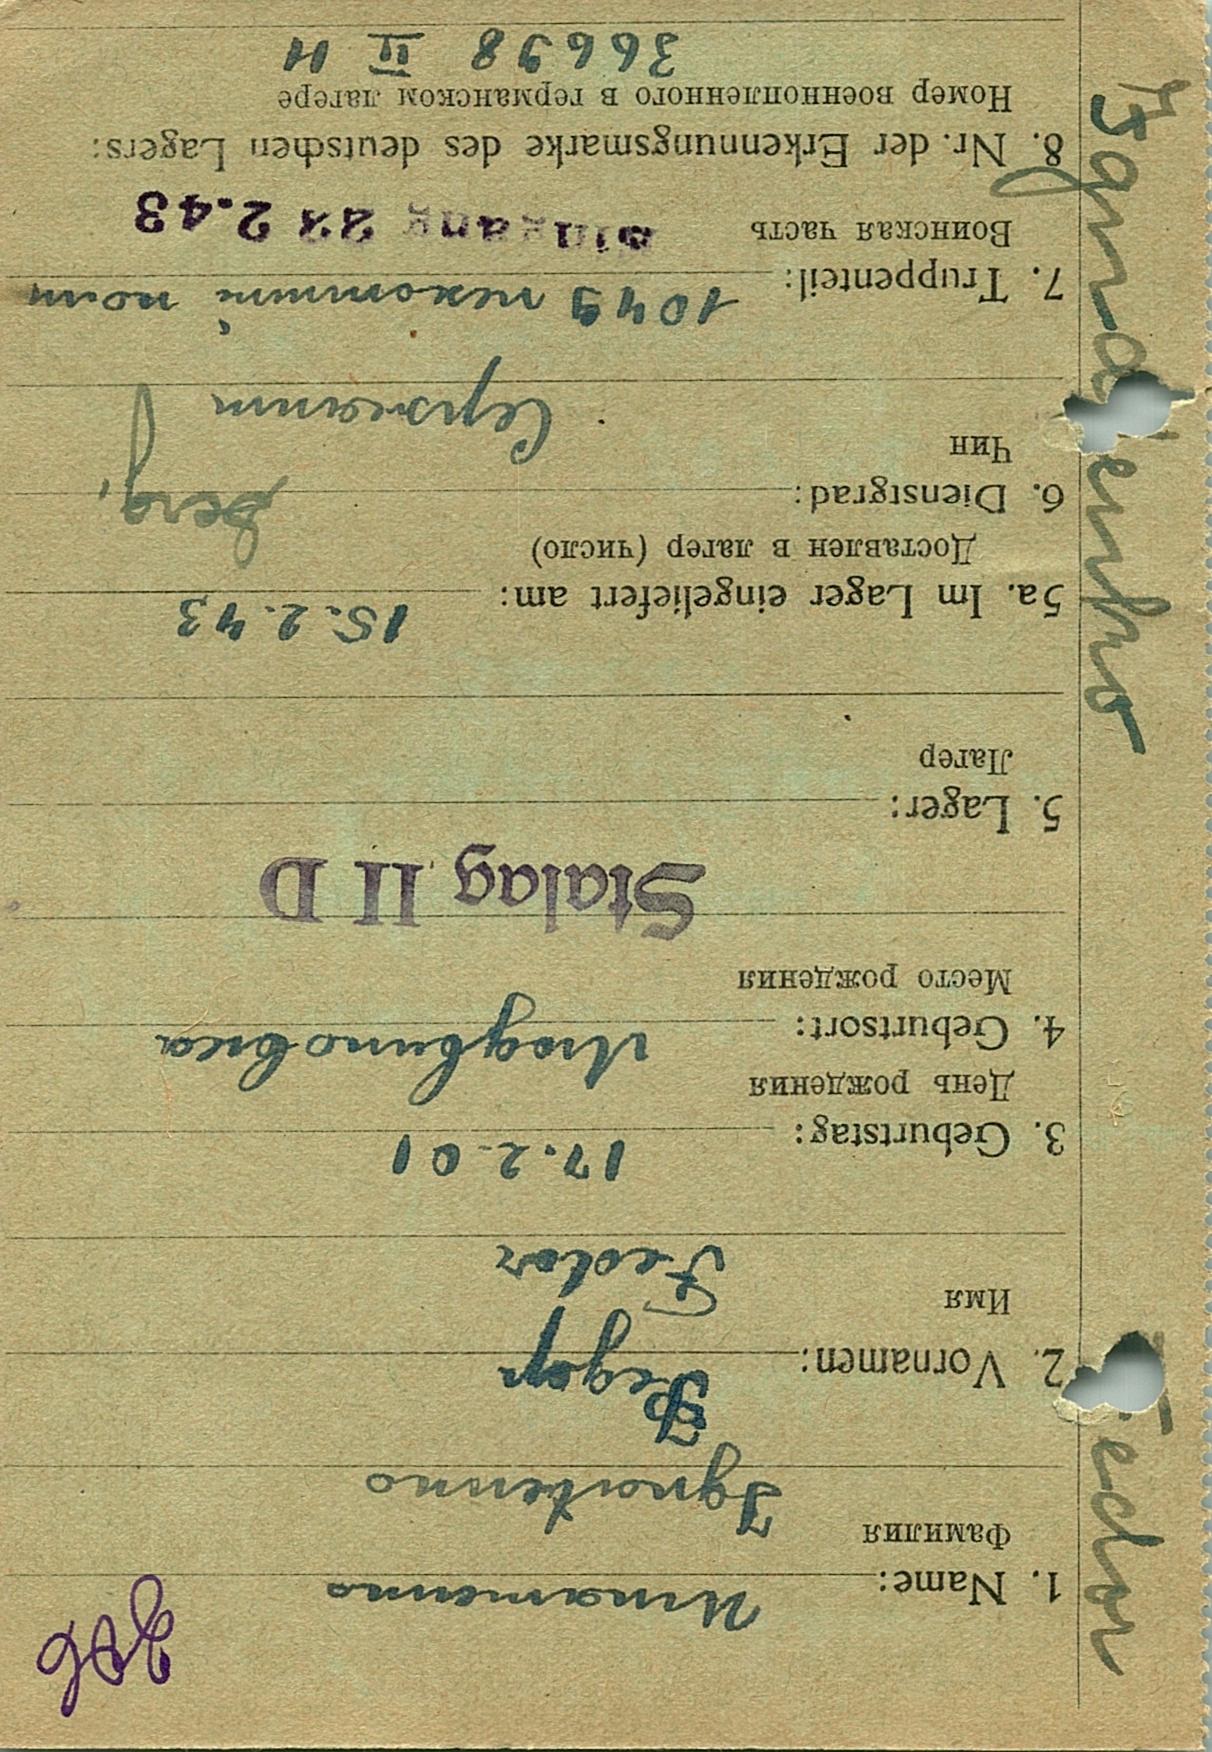 1. Name: Игнатенко
Фамилия
Ignatenko
2. Vornamen: Федор
Имя
Fedor
3. Geburtstag: 17.2.01
День рождения
4. Geburtsort:
Место рождения
Stalag II D
5. Lager:
Лагерь
5a. Im Lager eingeliefert am: 15.2.43
Доставлен в лагерь (число)
6. Dienstgrad: Serg.
Чин
Сержант
7. Truppenteil: 1049
Воинская часть
eingang 22 2.43
8. Nr. der Erkennungsmarke des deutschen Lagers:
Номер военнопленного в германском лагере
36698 II H
Fedor Ignatjenko